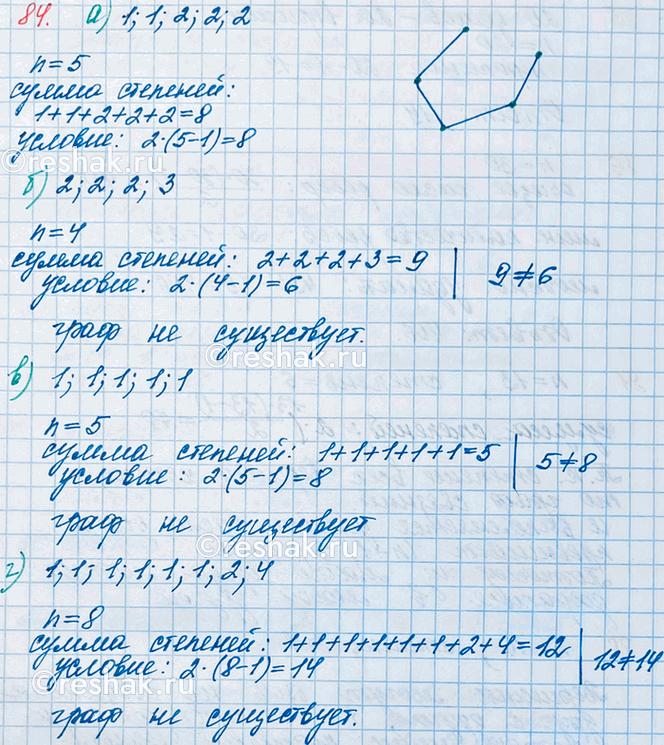 84. а) 1; 1; 2; 2; 2
n=5
сумма степеней:
1+1+2+2+2=8
условие: 2·(5-1)=8
reshak.ru
б) 2; 2; 2; 3
n=4
сумма степеней: 2+2+2+3=9 | 9≠6
условие: 2·(4-1)=6
граф не существует.
reshak.ru
в) 1; 1; 1; 1; 1
n=5
сумма степеней: 1+1+1+1+1=5 | 5≠8
условие: 2·(5-1)=8
граф не существует
reshak.ru
г) 1; 1; 1; 1; 1; 1; 2; 4
n=8
сумма степеней: 1+1+1+1+1+1+2+4=12 | 12≠14
условие: 2·(8-1)=14
граф не существует.
reshak.ru